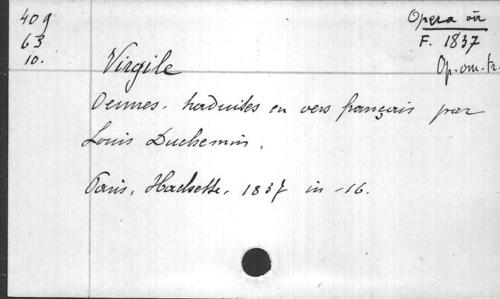 409
63
10.
Opera om
F. 1837
Op. om. fr.
Virgile
Oeuvres. traduites en vers français par
Louis Duchemin.
Paris, Hachette, 1837 in-16.